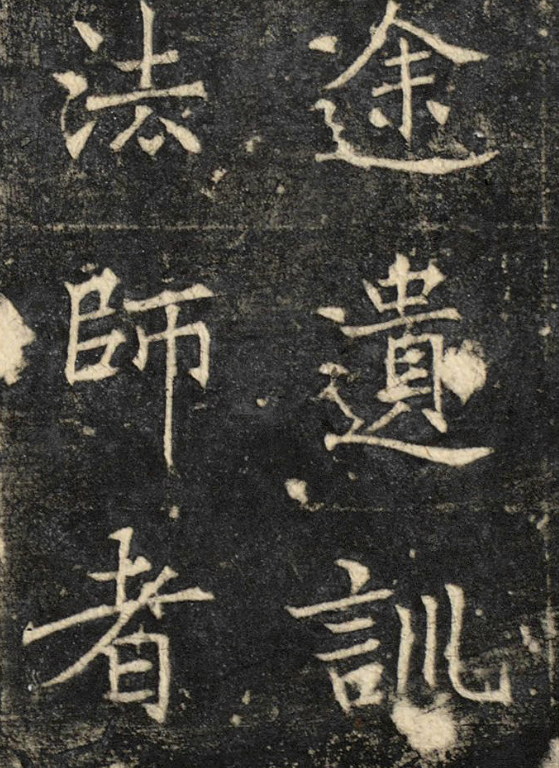 途遺訓
法師者